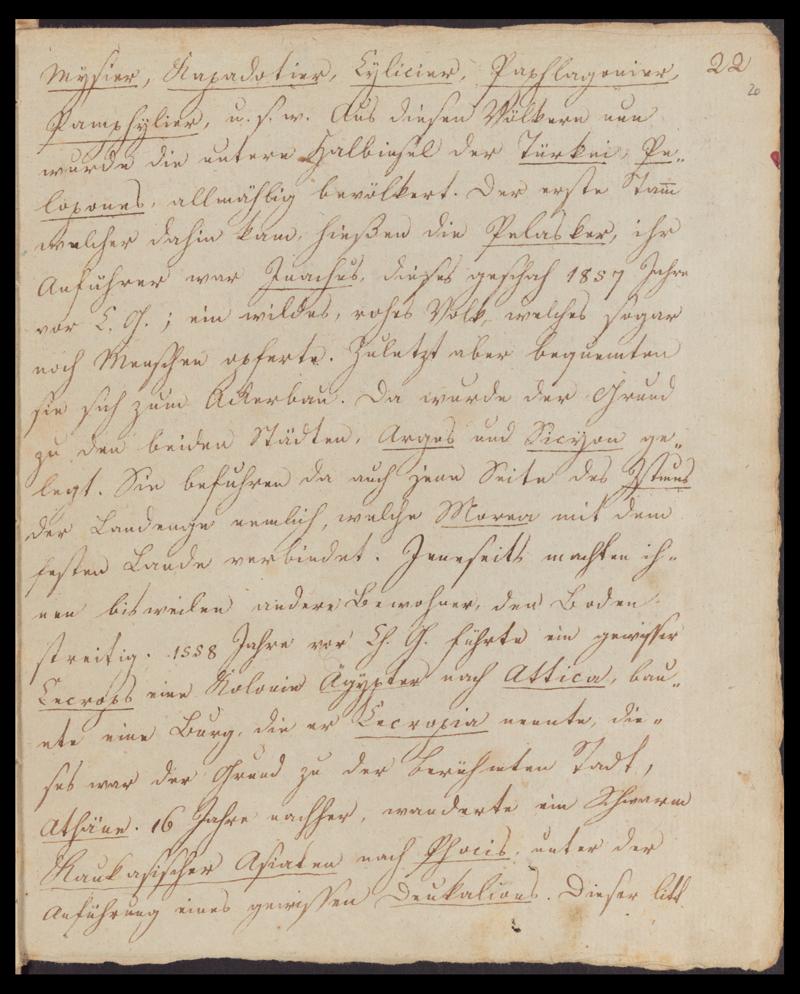 Mysier, Kapadotier, Cylicier, Paphlagonier, 22
20
Pamphylier, u. s. w. Aus diesen Völkern nun
wurde die untere Halbinsel der Türkei, Pe„
lopones, allmählig bevölkert. Der erste Stam̅
welcher dahin kam, hießen die Pelasker, ihr
Anführer war Inachus, dieses geschah 1857 Jahre
vor C. G.; ein wildes, rohes Volk, welches sogar
noch Menschen opferte. Zuletzt aber bequemten
sie sich zum Ackerbau. Da wurde der Grund
zu den beiden Städten, Argos und Sicyon ge„
legt. Sie befuhren da auch jene Seite des Istmus
der Landenge nemlich, welche Morea mit dem
festen Lande verbindet. Jenseits machten ih„
nen bisweilen andere Bewohner, den Boden
streitig. 1558 Jahre vor Ch. G. führte ein gewisser
Cecrops eine Kolonie Ägypter nach Attica, bau„
ete eine Burg, die er Cecropia nennte, die„
ses war der Grund zu der berühmten Stadt,
Athäne. 16 Jahre nachher, wanderte ein Schwarm
Kaukasischer Asiaten nach Phocis, unter der
Anführung eines gewissen Deukalions. Dieser litt